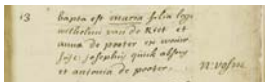 13 bapta est maria filia legi
wilhelmi van de Riet et
anna de pooter ex
josephus quick
et antonia de pooter.